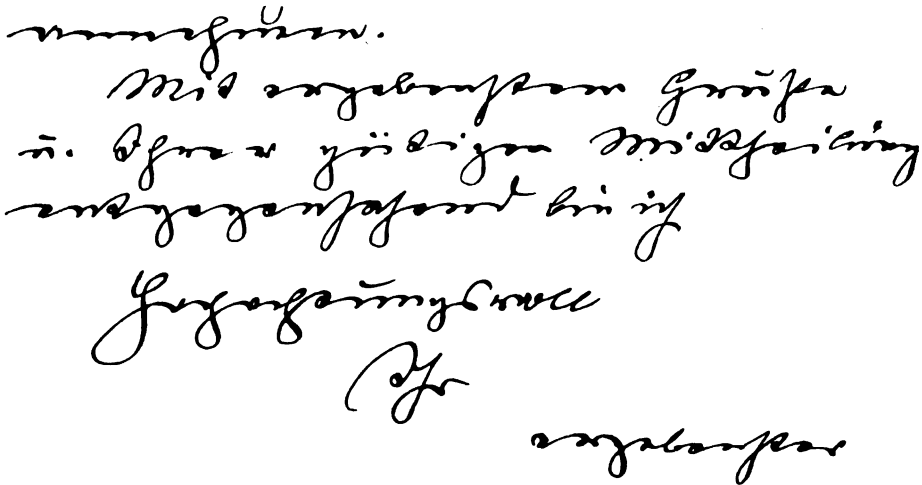 annehmen.
Mit ergebenstem Gruße
u. Ihrer gütigen Mittheilung
entgegensehend bin ich
Hochachtungsvoll
Ihr
ergebenster